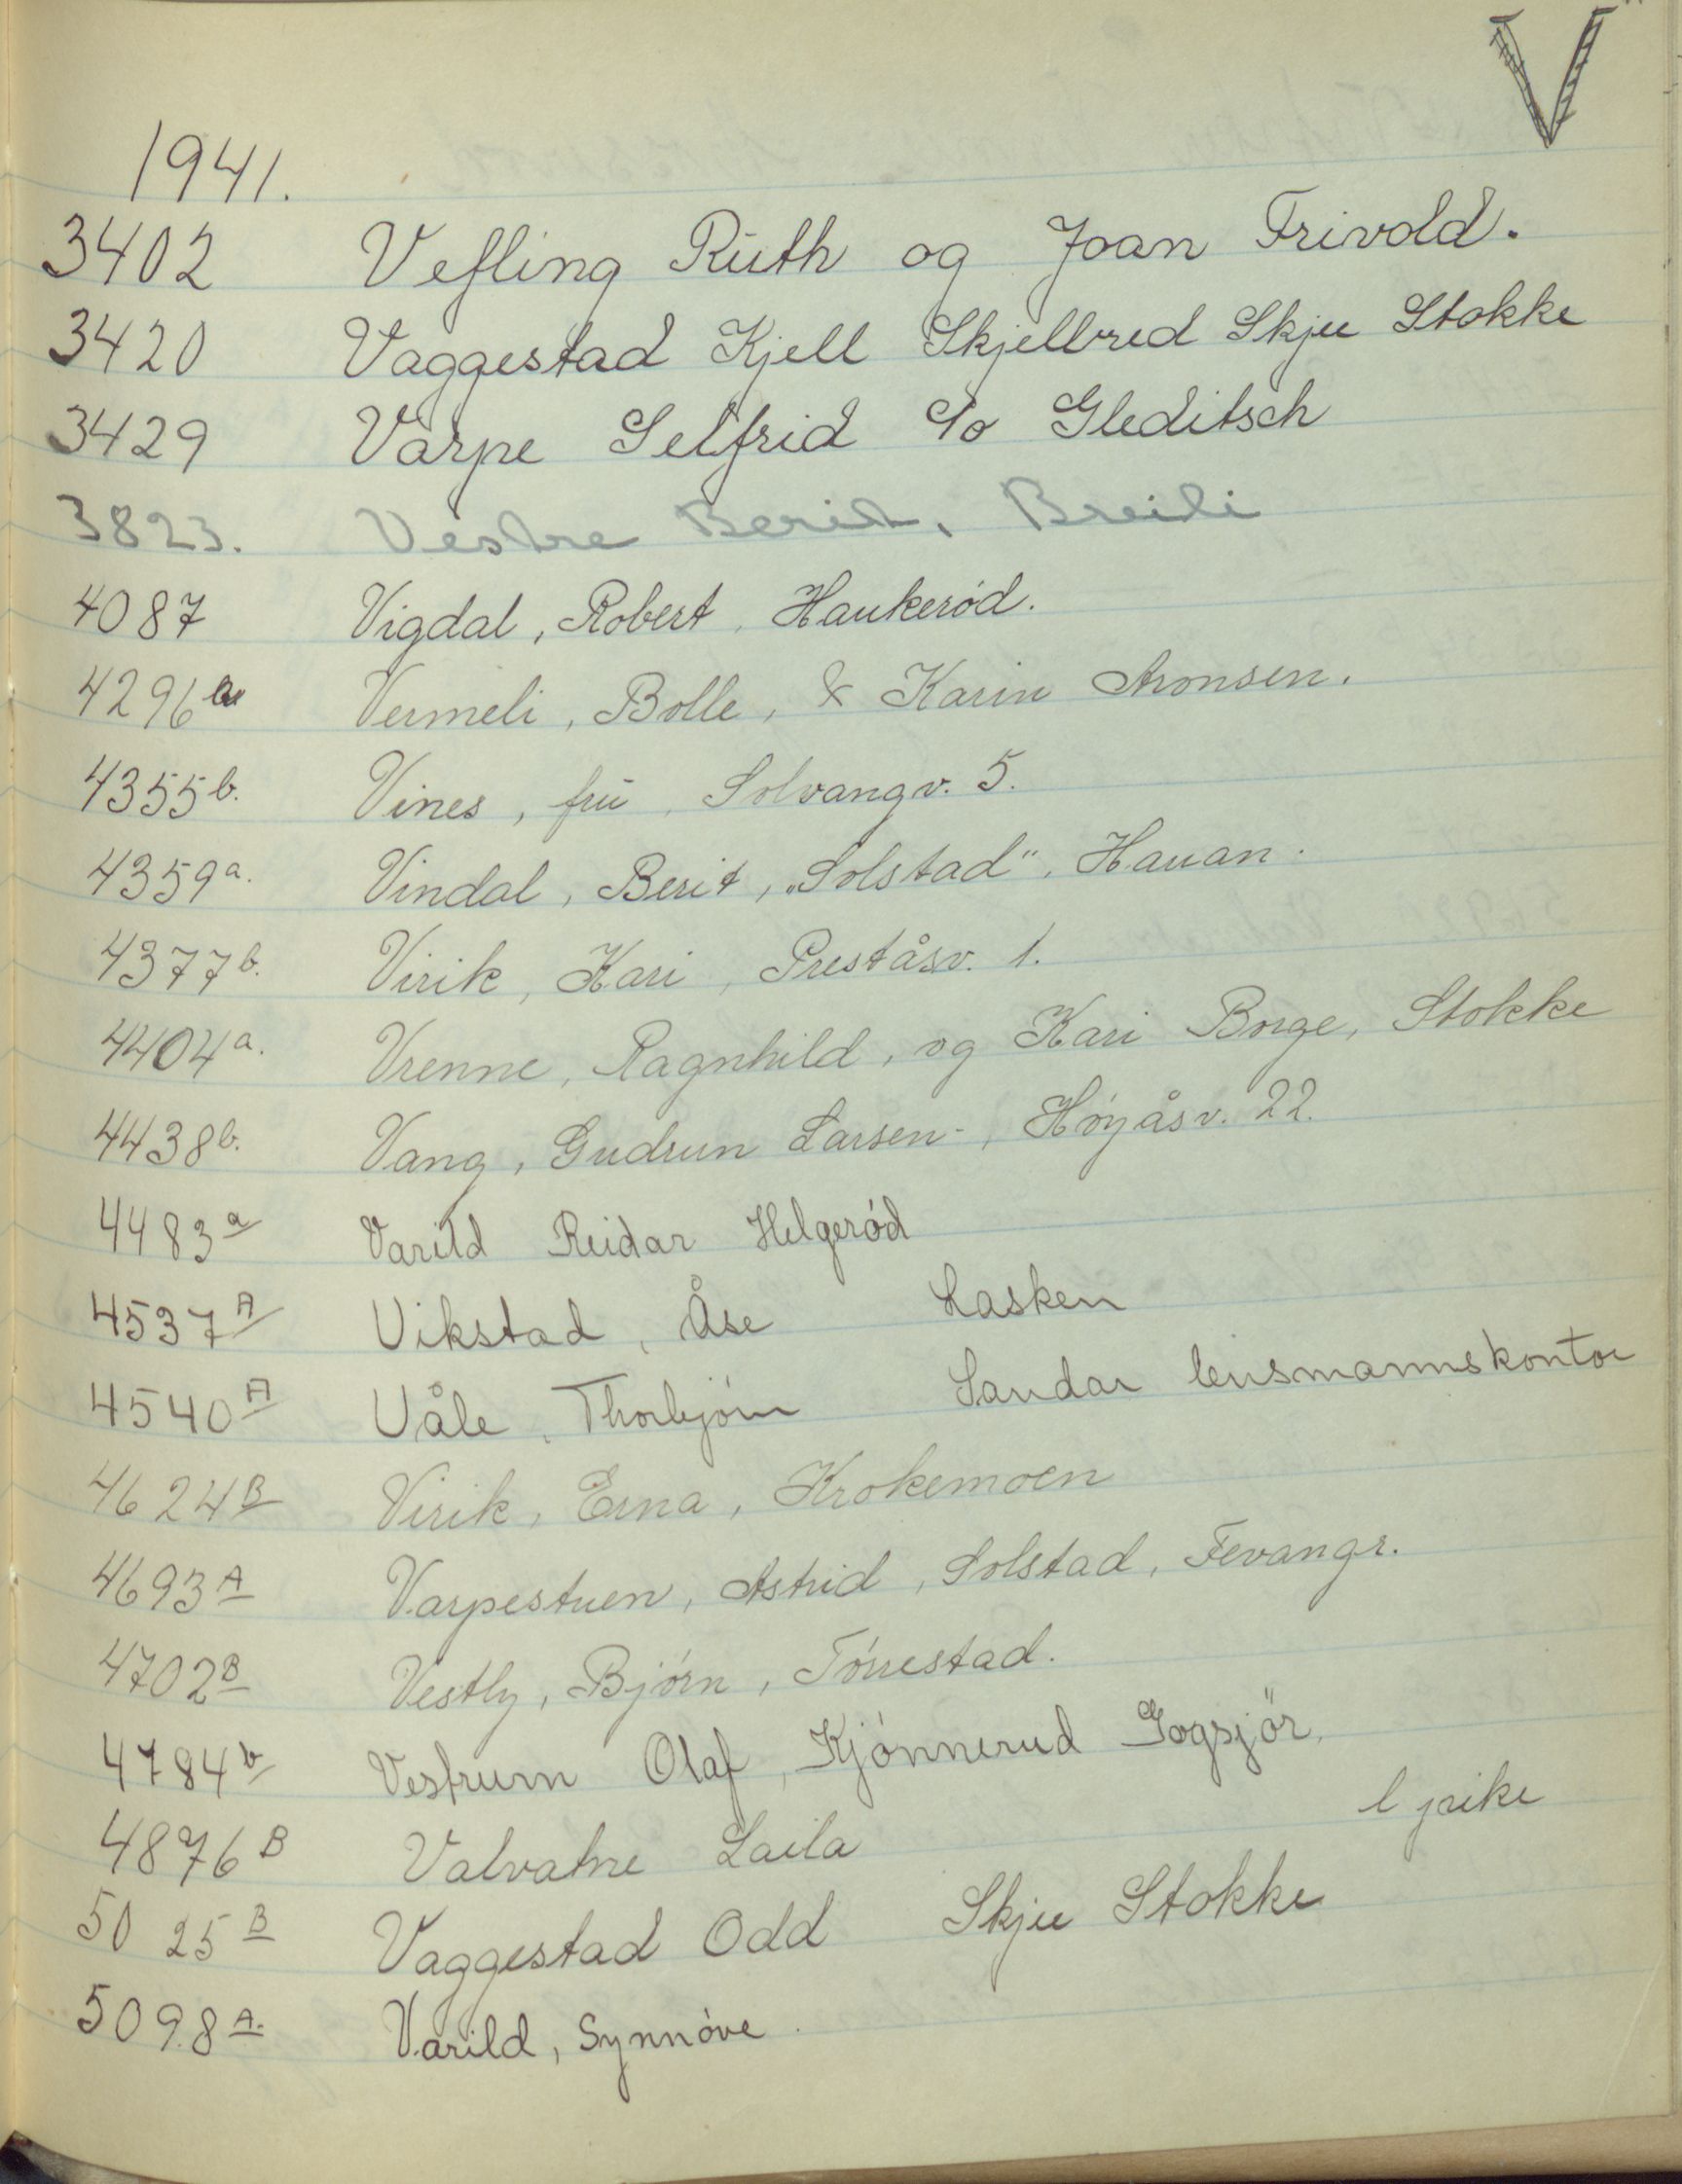 V
1941.
3402 Vefling Ruth og Joan Trivold.
3420 Vaggestad Kjell Skjellbred Skjee Stokke
3429 Varpe Selfrid c/o Gleditsch
3823. Vestre Berit, Breili
4087 Vigdal, Robert, Haukeród.
4296 a Vermeli, Bolle, & Karin Aronsen.
4355 b. Vines, frū, Solvangv. 5.
4359 a. Vindal, Berit, „Solstad", Hauan.
4377 b. Virik, Kari, Preståsv. 1.
4404 a. Vrenne, Ragnhild, og Kari Borge, Stokke
4438 b. Vang, Gudrun Larsen-, Hóyåsv. 22.
4483 a Varild Reidar Helgeród
4537 A Vikstad, Åse Lasken
4540 A Våle, Thorbjórn Sandar lensmannskontor
4624 B Virik, Erna, Krokemoen
4693 A Varpestuen, Astrid, Solstad, Fevangr.
4702 B Vestly, Bjórn, Tórrestad.
4784 b Vestrum Olaf, Kjónnerud Gogsjör,
4876 B Valvatne Laila
5025 B Vaggestad Odd Skjee Stokke
5098 A. Varild, Synnóve.